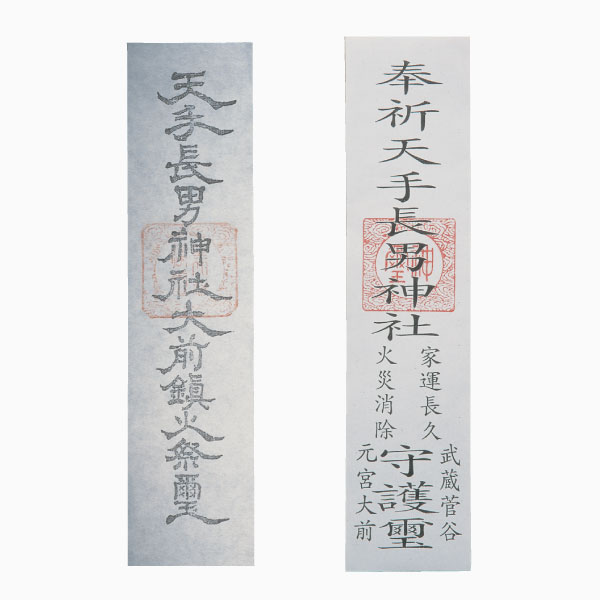 天手長男神社大前鎮火祭璽
奉祈天手長男神社
家運長久
火災消除
守護璽
武蔵菅谷
元宮大前